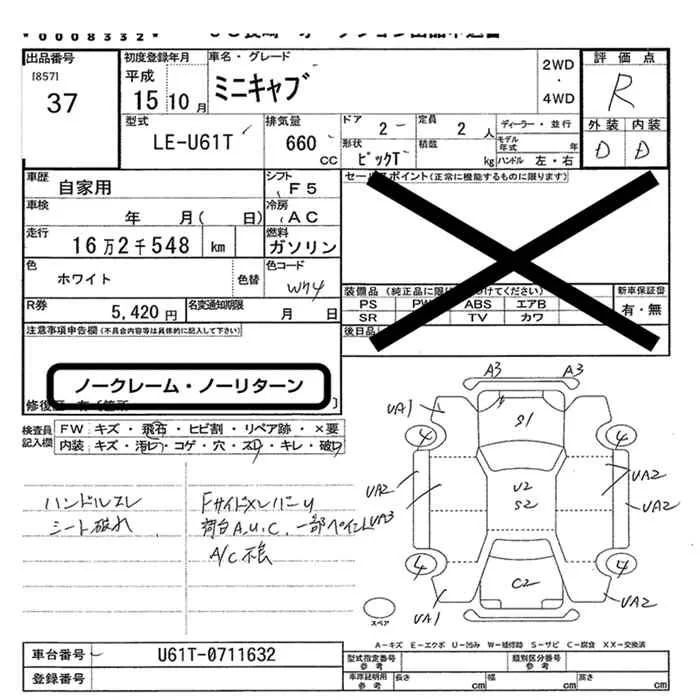 *0008332*
出品番号
[857]
37
初度登録年月
平成
15 10 月
車名・グレード
ミニキャブ
2WD
・
4WD
評価点
R
外装 内装
D D
型式
LE-U61T
排気量
660 CC
ドア 2
定員 2 人
ディーラー・並行
モデル年式 年
形状
ピックT
積載 kg
ハンドル 左・右
車歴
自家用
シフト
F5
セールスポイント(正常に機能するものに限ります)
車検
年 月( 日)
冷房
AC
走行
16万2千548 km
燃料
ガソリン
色
ホワイト
色替
色コード
W74
装備品(純正品に限ります
けてください)
新車保証書
有・無
PS PW ABS エアB
SR TV カワ
後日品
R券
5,420円
名変通知期限
月 日
注意事項申告欄(不具合内容等は具体的に記入して下さい)
ノークレーム・ノーリターン
検査員記入欄
FW キズ・飛石・ヒビ割・リペア跡・×要
内装 キズ・汚レ・コゲ・穴・スレ・キレ・破レ
A3 A3
UA1
S1
4 4
UA2 UA2 UA2
U2
S2
UA3
4 4
C2
UA1 UA2
ハンドルスレ
シート破れ
Fサイドメンバーり
荷台A.U.C. 一部ペイント
A/C不良
スペア
A-キズ E-エクボ U-凹み W-補修跡 S-サビ C-腐食 XX-交換済
車台番号
U61T-0711632
登録番号
型式指定番号
参考
類別区分番号
参考
車庫証明用
参考
長さ cm 幅 cm 高さ cm